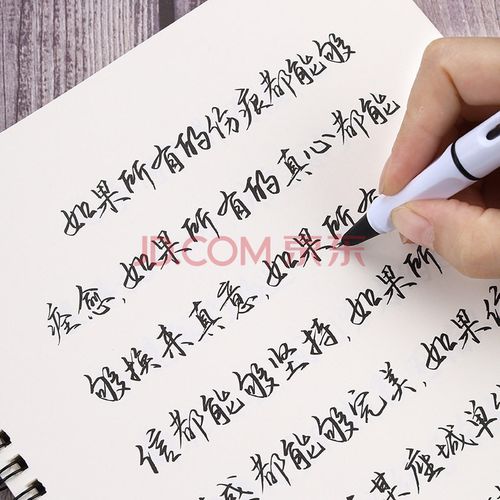 如果所有的伤痕都能够
痊愈,如果所有的真心都能
够换来真意,如果所有
信都能够坚持,如果所
感都能够完美,如果依
某座城单
JD.COM 京东